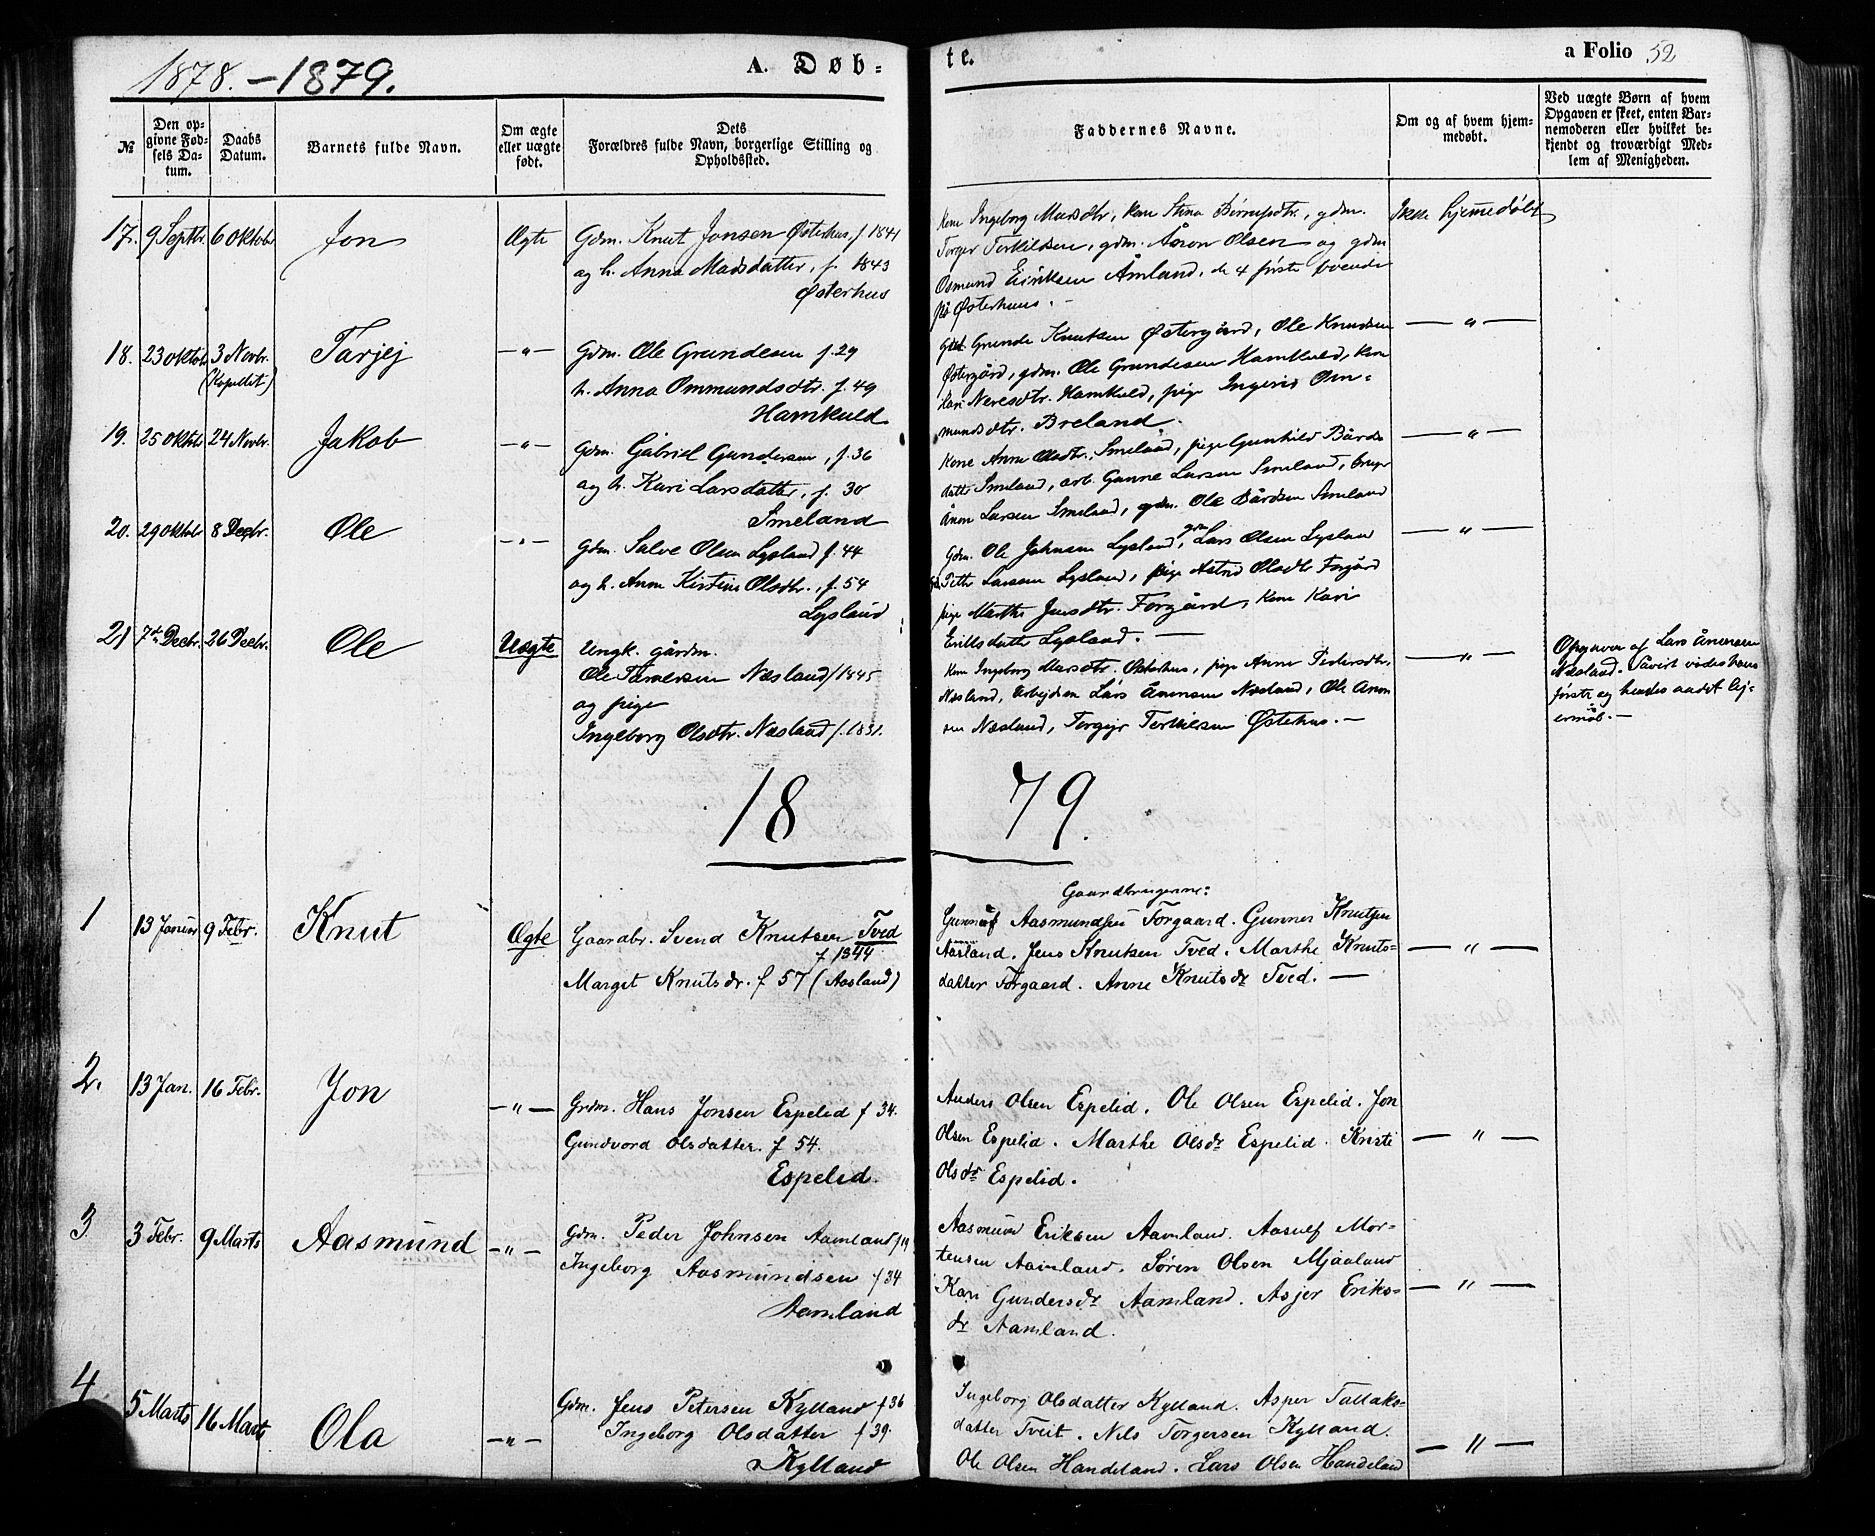 1878.-1879.
A. Døb-
te.
a Folio 52
№
Den opgivne Fødsels Datum.
Daabs Datum.
Barnets fulde Navn.
Om ægte eller uægte født.
Dets Forældres fulde Navn, borgerlige Stilling og Opholdssted.
Faddernes Navne.
Om og af hvem hjemmedøbt.
Ved uægte Børn af hvem Opgaven er skeet, enten Barnemoderen eller hvilket bekjendt og troværdigt Medlem af Menigheden.
17. 9 Septbr. 6 Oktobr Jon Ægte
Gdm. Knut Jonsen Østerhus, f. 1841
og h. Anna Madsdatter, f. 1843
Østerhus
Kone Ingeborg Marsdtr, kone Stina gdm.
Torger Terkildsen, gdm. Ånon Olsen og gdm
Osmund Eriksen Åmland, de 4 første boende
på Østerhus.
Ikke hjemmedøbt
18. 23 Oktobr 3 Novbr. (Kapellet) Tarjej —"—
Gdm. Ole Grundesen f. 29
h. Anna Ommundsdtr. f. 49
Hamkuld
Grunde Knutsen Østergård, Ole Knudsen
Østergård, gdm. Ole Grundesen Hamkuld, kone
Kari Neresdtr. Hamkuld, pige Ingerid Om=
mundsdtr. Breland.
—"—
19. 25 Oktobr 24 Novbr. Jakob —"—
Gdm. Gabriel Gundersen, f. 36
og h. Kari Larsdatter, f. 30
Smeland
Kone Anne Olsdtr. Smeland, pige Gunhild Bårds
datter Smeland, arb. Gunne Larsen Smeland,
Ånon Larsen Smeland, gdm. Ole Bårdsen Smeland
—"—
20. 29 Oktobr 8 Decbr. Ole —"—
Gdm. Salve Olsen Lysland f. 44
og h. Anne Kirstine Olsdtr., f. 54
Lysland
Gdm. Ole Johnsen Lysland, gdm Lars Olsen Lysland
Peder Larsen Lysland, pige Astrid Olsdtr Forgård
pige Marthe Jensdtr. Forgård, kone Kari
Eriksdatter Lysland. —
—"—
21 7de Decbr. 26 Decbr. Ole Uægte
Ungk. gårdm.
Ole Taralersen Næsland f 1845
og pige
Ingeborg Olsdtr. Næsland f. 1831.
Kone Ingeborg Marsdtr. Østerhus, pige Anne Pedersdtr.
Næsland, Arbejdsm Lars Ånonsen Næsland, Ole Anon
sen Næsland, Torgejr Terkilsen Østerhus. —
—"—
Opgaven af Lars Ånonsen
Næsland. Såvidt vides hans
første og hendes andet lej-
ermål. —
18 79.
1 13 Januar 9 Febr. Knut Ægte
Gaardbr. Svend Knutsen Tved
f 1844
Marget Knutsdr. f 57 (Aasland)
Gaardbrugerne:
Gunnuf Aasmundsen Forgaard. Gunner Knutsen
Aasland. Jens Knutsen Tved. Marthe Knuts=
datter Forgaard. Anne Knutsdr Tved. —
—"—
2. 13 Jan. 16 Febr. Jon —"—
Grdm. Hans Jonsen Espelid f 34.
Gundvord Olsdatter. f 54.
Espelid.
Anders Olsen Espelid. Ole Olsen Espelid. Jon
Olsen Espelid. Marthe Olsdr Espelid. Kristi
Olsdr Espelid.
—"—
3 3 Febr. 9 Marts Aasmund —"—
Gdm. Peder Johnsen Aamland f 19
Ingeborg Aasmundsen f 34
Aamland
Aasmund Eriksen Aamland. Aasulf Mor=
tensen Aamland. Søren Olsen Mjaaland
Kari Gundersdr Aamland. Asjer Eriks=
dr Aamland.
—"—
4 5 Marts 16 Marts Ola —"—
Gdm. Jens Petersen Kylland f 36
Ingeborg Olsdatter f 39.
Kylland
Ingeborg Olsdatter Kylland. Asper Tallaks=
datter Tveit. Nils Torgersen Kylland.
Ole Olsen Handeland. Lars Olsen Handeland
—"—